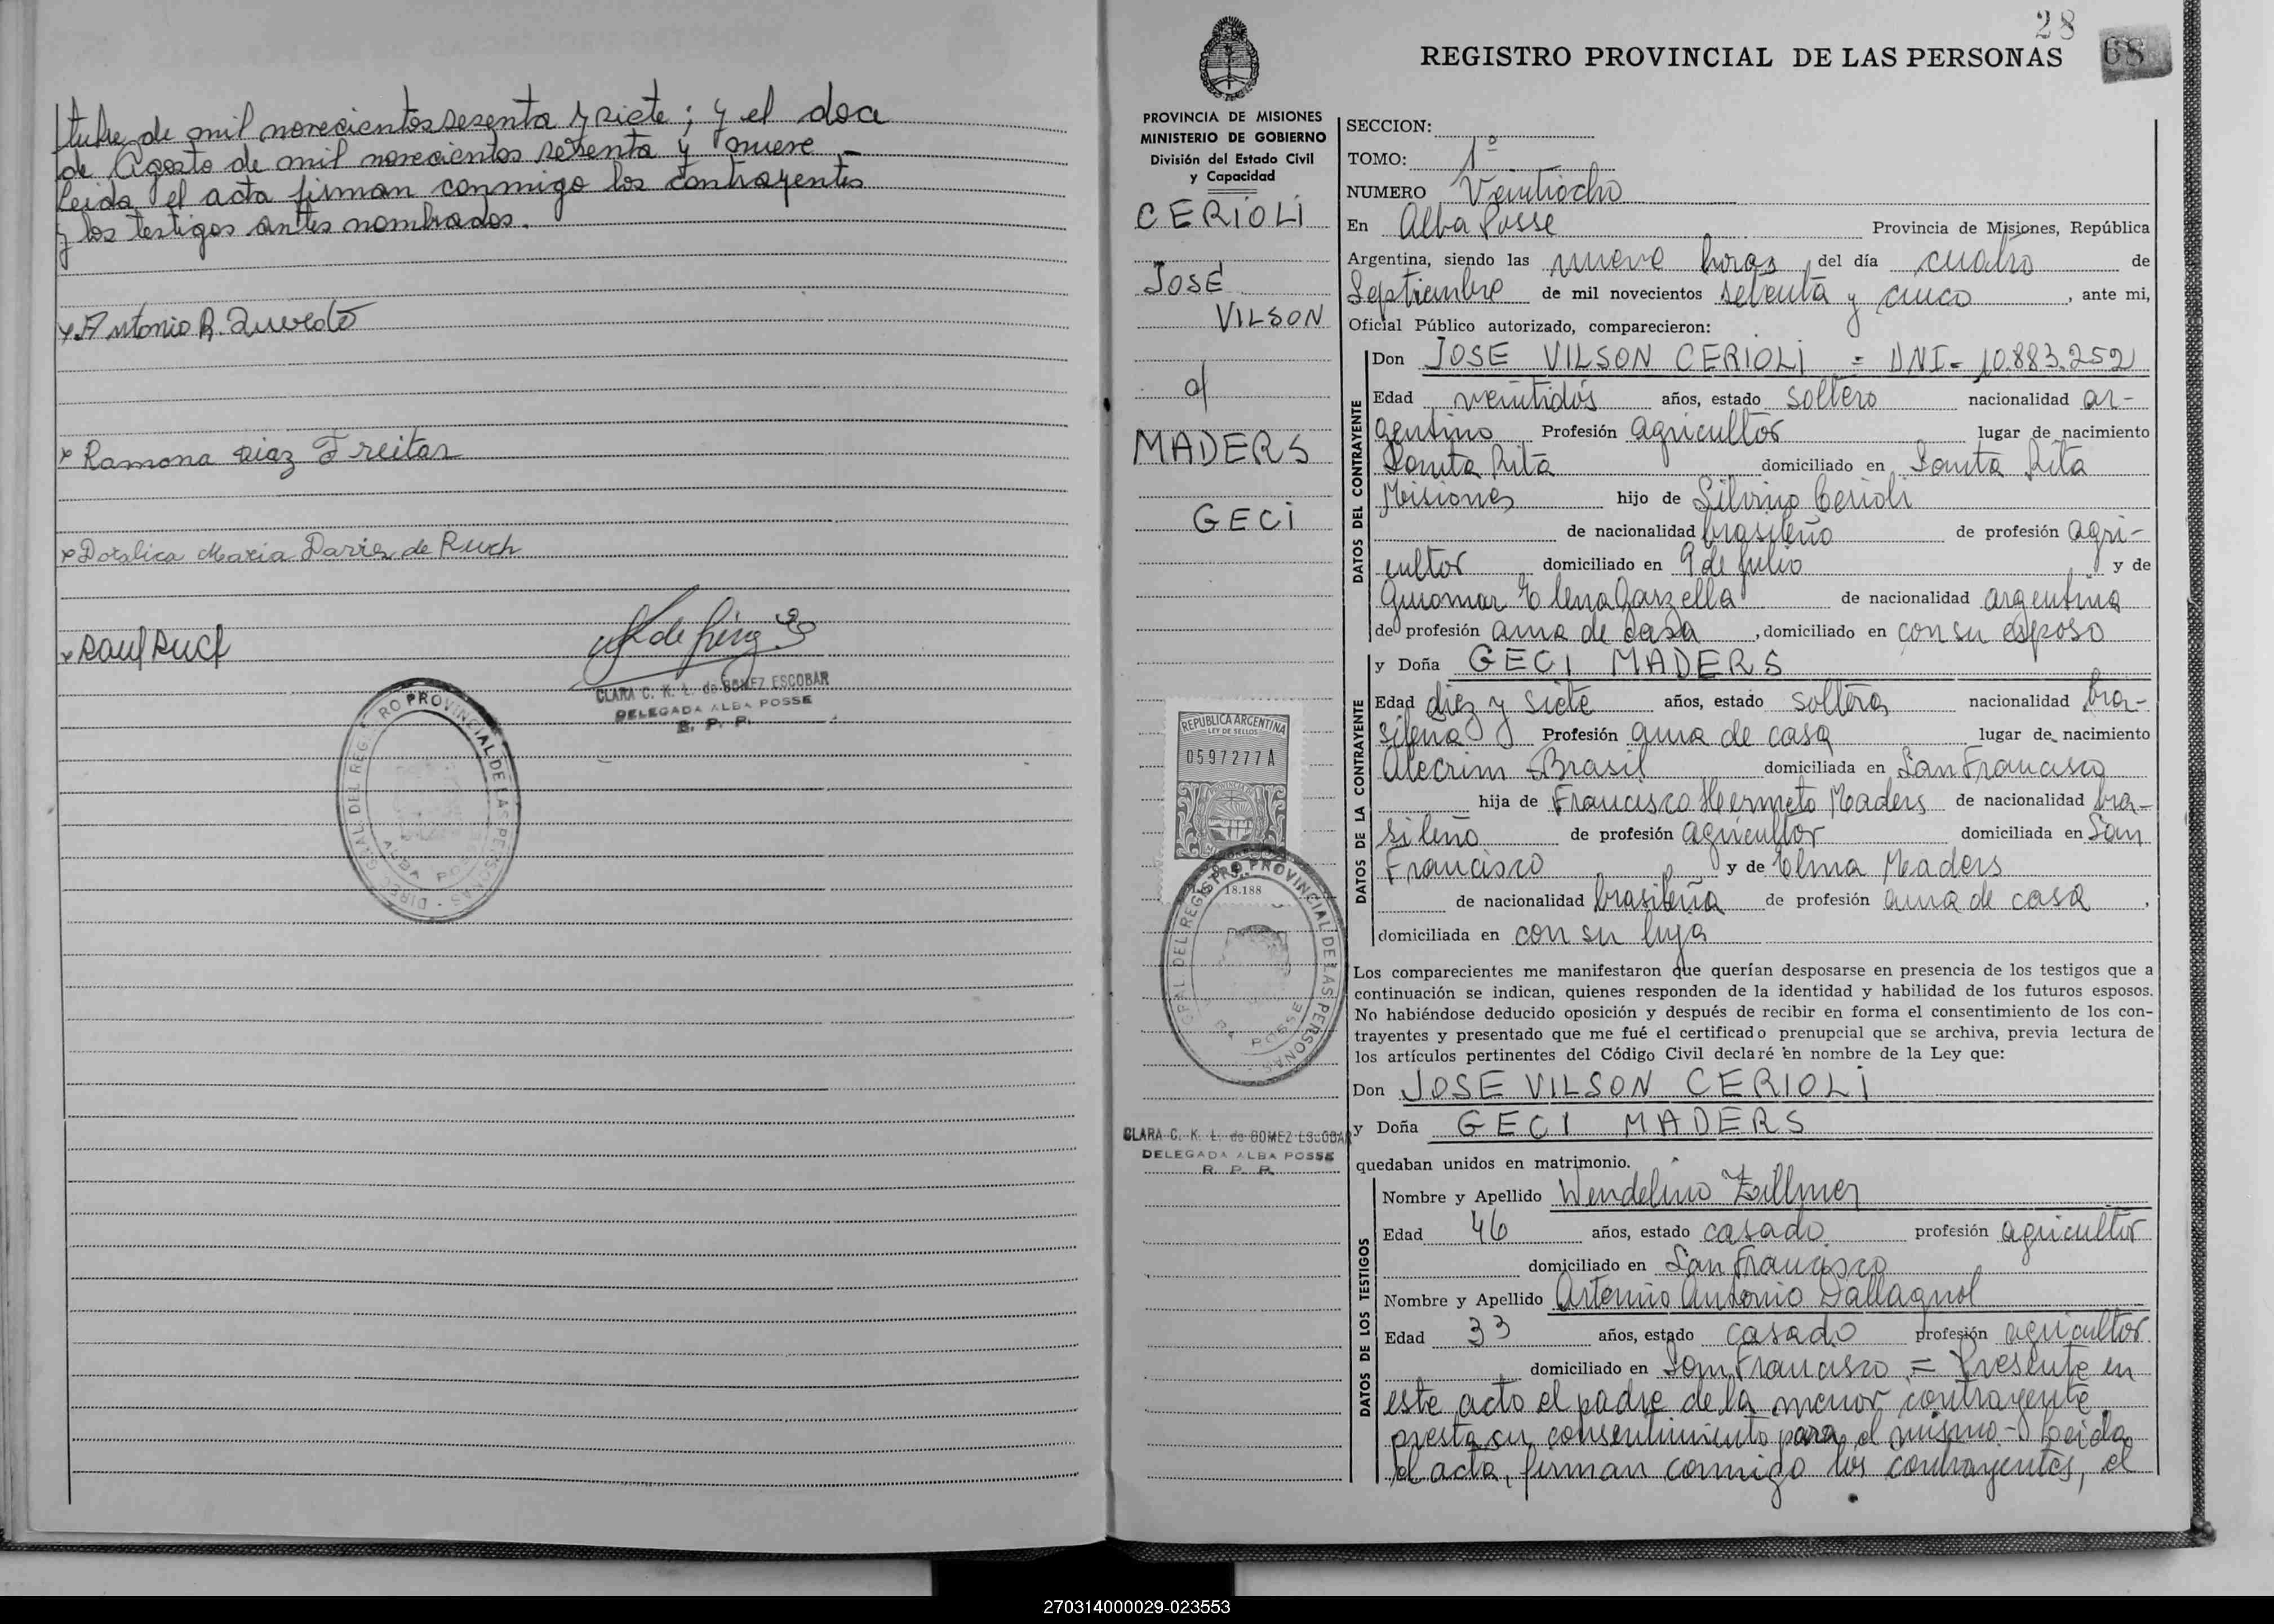 tubre de mil novecientos sesenta y siete; y el doce
de Agosto de mil novecientos sesenta y nueve -
Leida el acta firman conmigo los contrayentes
y los testigos antes nombrados.
Antonio R. Quevedo
Ramona Diaz Freitas
Doralica Maria Daries de Ruch
Raul Ruch
CLARA C. K. L. de GOMEZ ESCOBAR
DELEGADA ALBA POSSE
R. P. P.
DIREC. GRAL. DEL REGISTRO PROVINCIAL DE LAS PERSONAS
ALBA POSSE
28
REGISTRO PROVINCIAL DE LAS PERSONAS
68
PROVINCIA DE MISIONES
MINISTERIO DE GOBIERNO
División del Estado Civil
y Capacidad
CERIOLI
JOSE
VILSON
c/
MADERS
GECI
REPUBLICA ARGENTINA
LEY DE SELLOS
0597277A
18.188
GRAL. DEL REGISTRO PROVINCIAL DE LAS PERSONAS
BA POSSE
CLARA C. K. L. de GOMEZ ESCOBAR
DELEGADA ALBA POSSE
R. P. P.
SECCION:
TOMO: 1º
NUMERO Veintiocho
En Alba Posse Provincia de Misiones, República
Argentina, siendo las nueve horas del día cuatro de
Septiembre de mil novecientos setenta y cinco, ante mi,
Oficial Público autorizado, comparecieron:
DATOS DEL CONTRAYENTE
Don JOSE VILSON CERIOLI = DNI- 10.883.252
Edad veintidós años, estado soltero nacionalidad ar-
gentino Profesión agricultor lugar de nacimiento
Santa Rita domiciliado en Santa Rita
Misiones hijo de Silvino Cerioli
de nacionalidad brasileño de profesión agri-
cultor domiciliado en 9 de Julio y de
Guiomar Elena Garzella de nacionalidad argentina
de profesión ama de casa, domiciliado en con su esposo
DATOS DE LA CONTRAYENTE
y Doña GECI MADERS
Edad diez y siete años, estado soltera nacionalidad bra-
sileña Profesión ama de casa lugar de nacimiento
Alecrim - Brasil domiciliada en San Francisco
hija de Francisco Hermeto Maders de nacionalidad bra-
sileño de profesión agricultor domiciliada en San
Francisco y de Elma Maders
de nacionalidad brasileña de profesión ama de casa,
domiciliada en con su hija
Los comparecientes me manifestaron que querían desposarse en presencia de los testigos que a
continuación se indican, quienes responden de la identidad y habilidad de los futuros esposos.
No habiéndose deducido oposición y después de recibir en forma el consentimiento de los con-
trayentes y presentado que me fué el certificado prenupcial que se archiva, previa lectura de
los artículos pertinentes del Código Civil declaré en nombre de la Ley que:
Don JOSE VILSON CERIOLI
y Doña GECI MADERS
quedaban unidos en matrimonio.
DATOS DE LOS TESTIGOS
Nombre y Apellido Wendelino Zillmer
Edad 46 años, estado casado profesión agricultor
domiciliado en San Francisco
Nombre y Apellido Artemio Antonio Dallagnol
Edad 33 años, estado casado profesión agricultor
domiciliado en San Francisco = Presente en
este acto el padre de la menor contrayente
presta su consentimiento para el mismo - Leida
el acta, firman conmigo los contrayentes, el
270314000029-023553